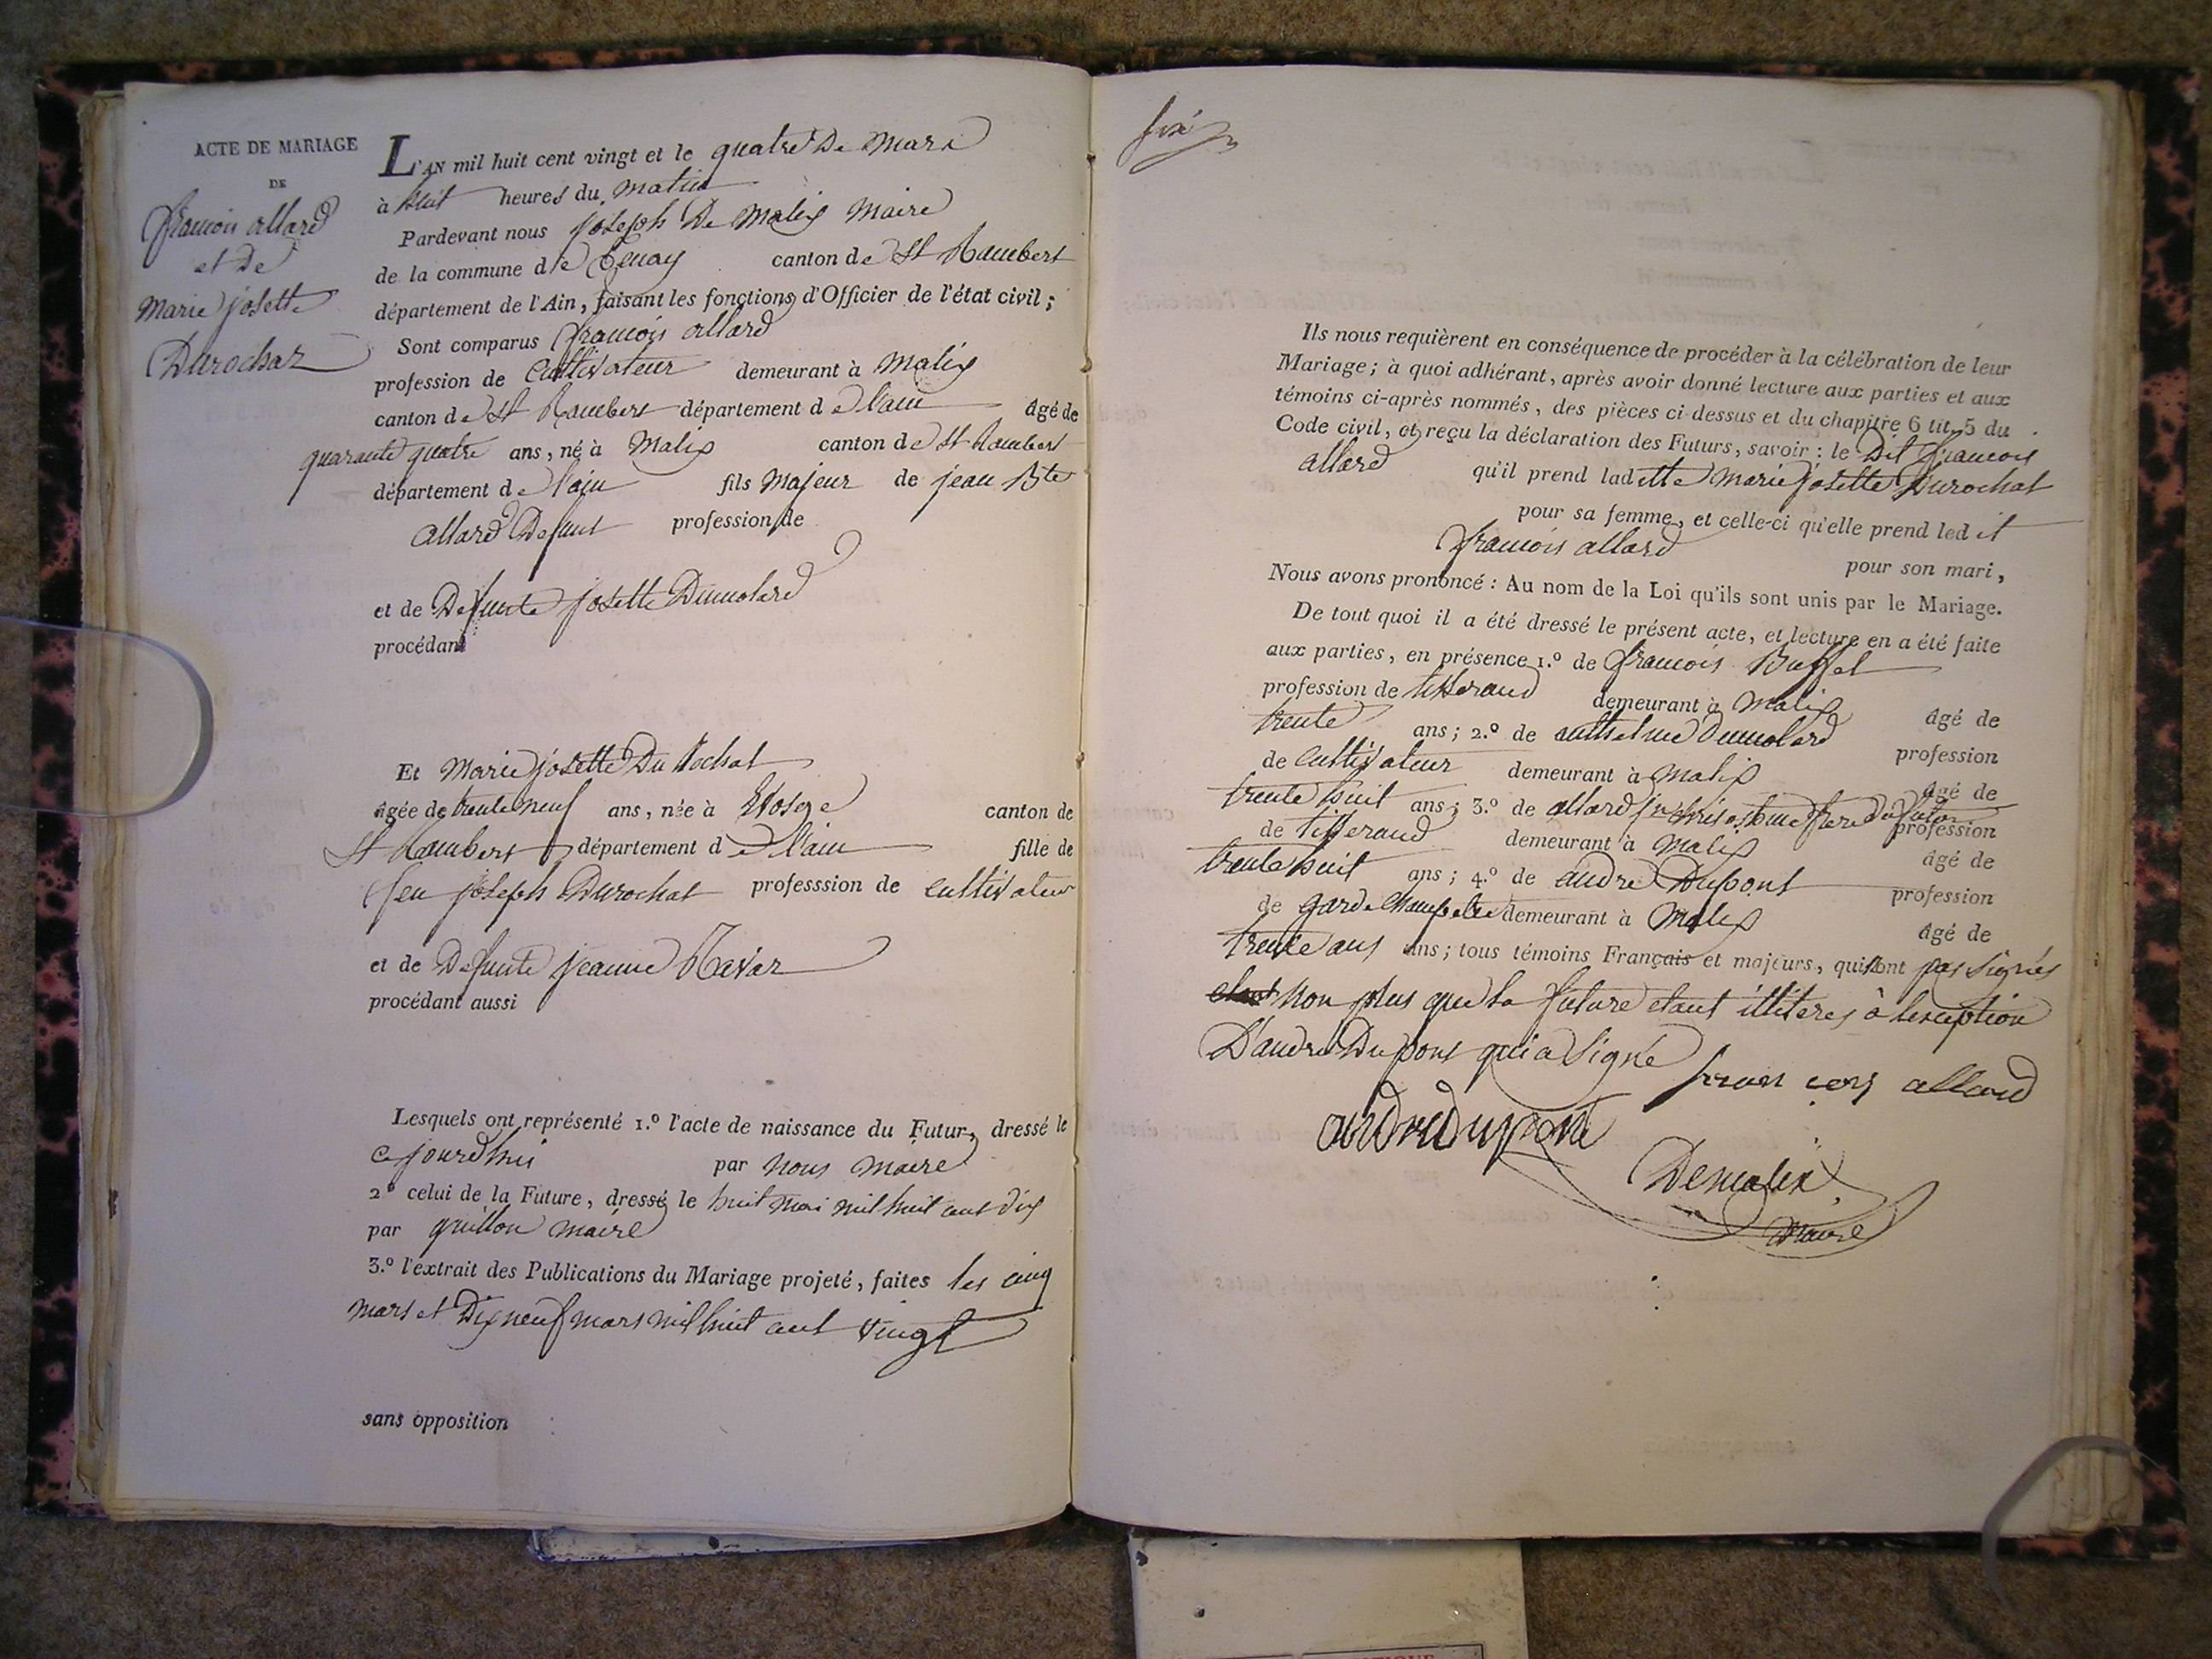 ACTE DE MARIAGE
DE
francois allard
et de
Marie josette
Durochaz
L'AN mil huit cent vingt et le quatre De Mars
à huit heures du matin
Pardevant nous joseph De Malix Maire
de la commune de Tenay canton de St Rambert
département de l'Ain, faisant les fonctions d'Officier de l'état civil;
Sont comparus francois allard
profession de Cultivateur demeurant à Malix
canton de St Rambert département de lain âgé de
quarante quatre ans, né à Malix canton de St Rambert
département de lain fils Majeur de jean Bte
allard Defunt profession de
et de Defunte josette Dumolard
procédant
Et Marie josette Du Rochat
âgée de trente neuf ans, née à Evosge canton de
St Rambert département de lain fille de
feu joseph Durochat professsion de cultivateur
et de Defunte jeanne Ravaz
procédant aussi
Lesquels ont représenté 1.º l'acte de naissance du Futur, dressé le
ce jourdhui par nous maire
2º celui de la Future, dressé le huit mai mil huit cent dix
par guillon maire
3.º l'extrait des Publications du Mariage projeté, faites les cinq
mars et Dix neuf mars mil huit cent vingt
sans opposition
Ils nous requièrent en conséquence de procéder à la célébration de leur
Mariage; à quoi adhérant, après avoir donné lecture aux parties et aux
témoins ci-après nommés, des pièces ci-dessus et du chapitre 6 tit. 5 du
Code civil, et reçu la déclaration des Futurs, savoir: le Dit francois
allard qu'il prend laditte Marie josette Durochat
pour sa femme, et celle-ci qu'elle prend ledit
francois allard pour son mari,
Nous avons prononcé: Au nom de la Loi qu'ils sont unis par le Mariage.
De tout quoi il a été dressé le présent acte, et lecture en a été faite
aux parties, en présence 1.º de francois Buffet
profession de tisserand demeurant à Malix âgé de
trente ans; 2.º de anthelme Dumolard profession
de cultivateur demeurant à Malix âgé de
trente huit ans; 3.º de allard frere du futur profession
de tisserand demeurant à Malix âgé de
trente huit ans; 4.º de andré Dupont profession
de garde champetre demeurant à Malix âgé de
trente ans ans; tous témoins Français et majeurs, qui nont pas signés
non plus que la future etant illiteres à lexception
D'andre Dupont qui a signé
francois allard
andre dupont
Demalix
Maire